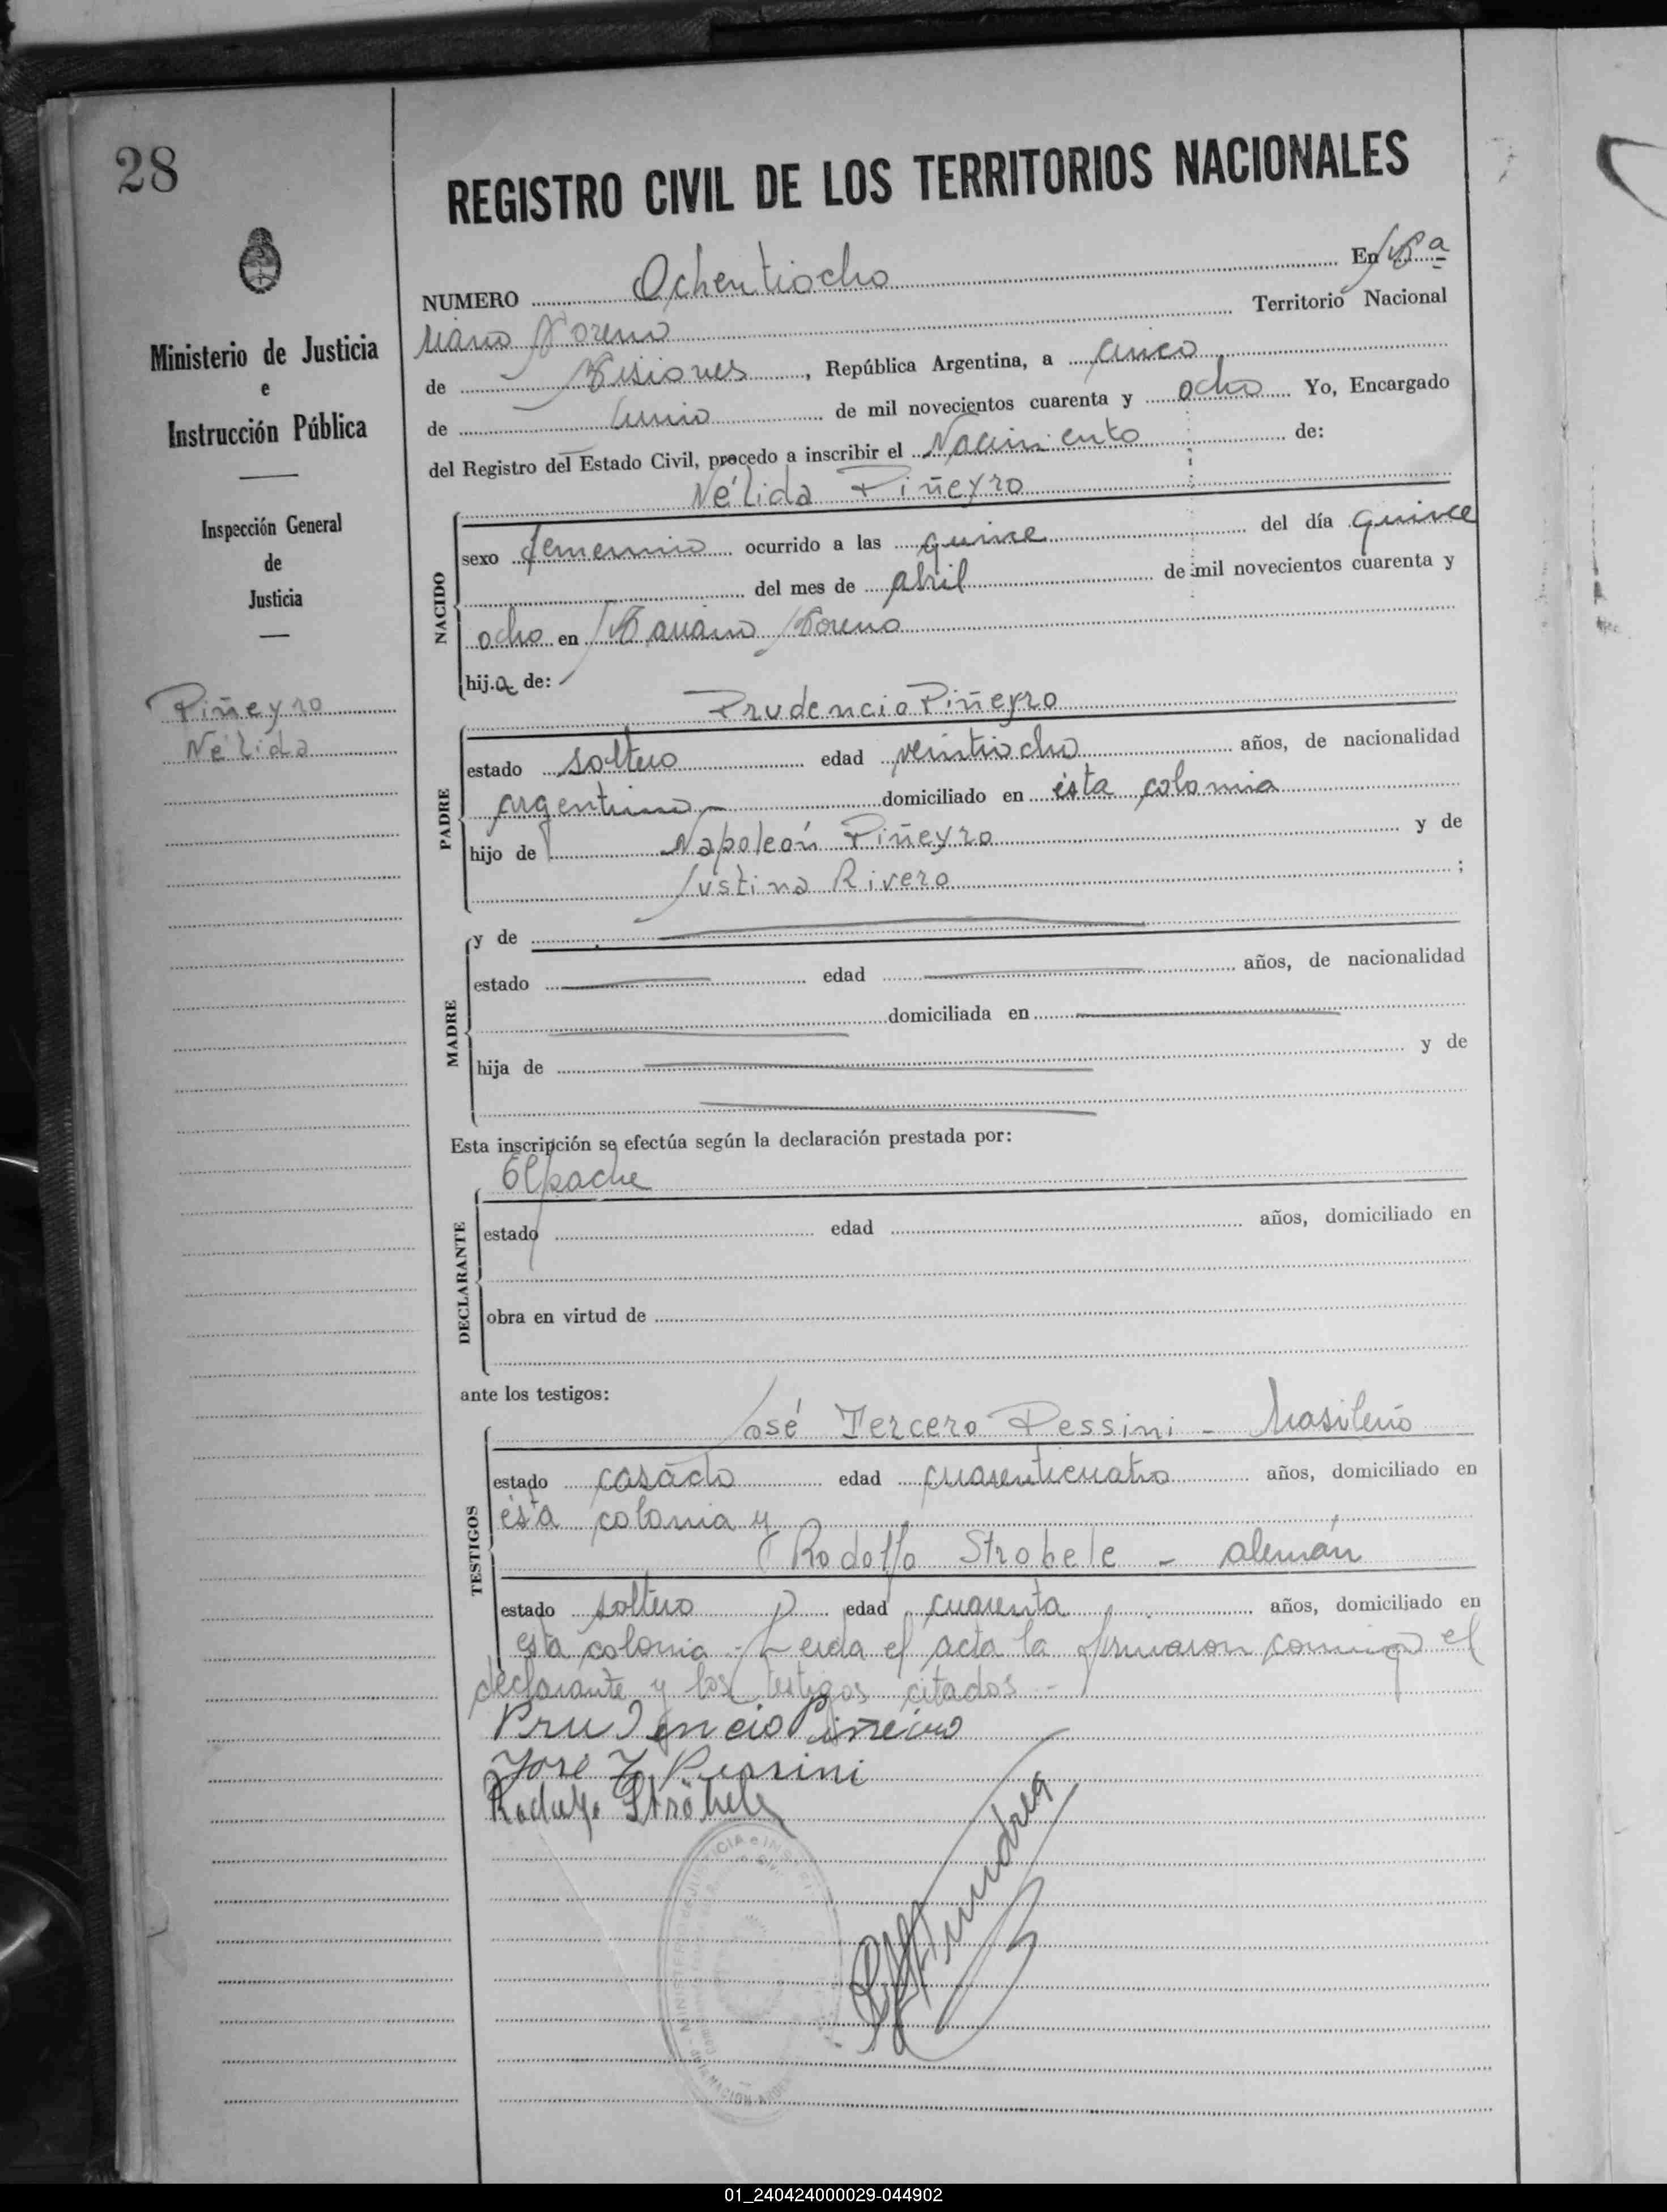 28
REGISTRO CIVIL DE LOS TERRITORIOS NACIONALES
NUMERO Ochentiocho En Ma
riano Moreno Territorio Nacional
de Misiones, República Argentina, a cinco
de Junio de mil novecientos cuarenta y ocho Yo, Encargado
del Registro del Estado Civil, procedo a inscribir el Nacimiento de:
Nélida Piñeyro
NACIDO
sexo femenino ocurrido a las quince del día quince
del mes de abril de mil novecientos cuarenta y
ocho en Mariano Moreno
hija de:
Prudencio Piñeyro
PADRE
estado soltero edad veintiocho años, de nacionalidad
argentino domiciliado en ésta colonia
hijo de Napoleón Piñeyro y de
Justina Rivero ;
MADRE
y de
estado edad años, de nacionalidad
domiciliada en
hija de y de
Esta inscripción se efectúa según la declaración prestada por:
El padre
DECLARANTE
estado edad años, domiciliado en
obra en virtud de
ante los testigos:
José Tercero Pessini - brasileño
TESTIGOS
estado casado edad cuarenticuatro años, domiciliado en
ésta colonia y
Rodolfo Strobele - alemán
estado soltero edad cuarenta años, domiciliado en
esta colonia - Leida el acta la firmaron conmigo el
declarante y los testigos citados -
Prudencio Piñeiro
Jose T. Pessini
Rodolfo Ströbele
Ministerio de Justicia
e
Instrucción Pública
Inspección General
de
Justicia
Piñeyro
Nélida
01_240424000029-044902